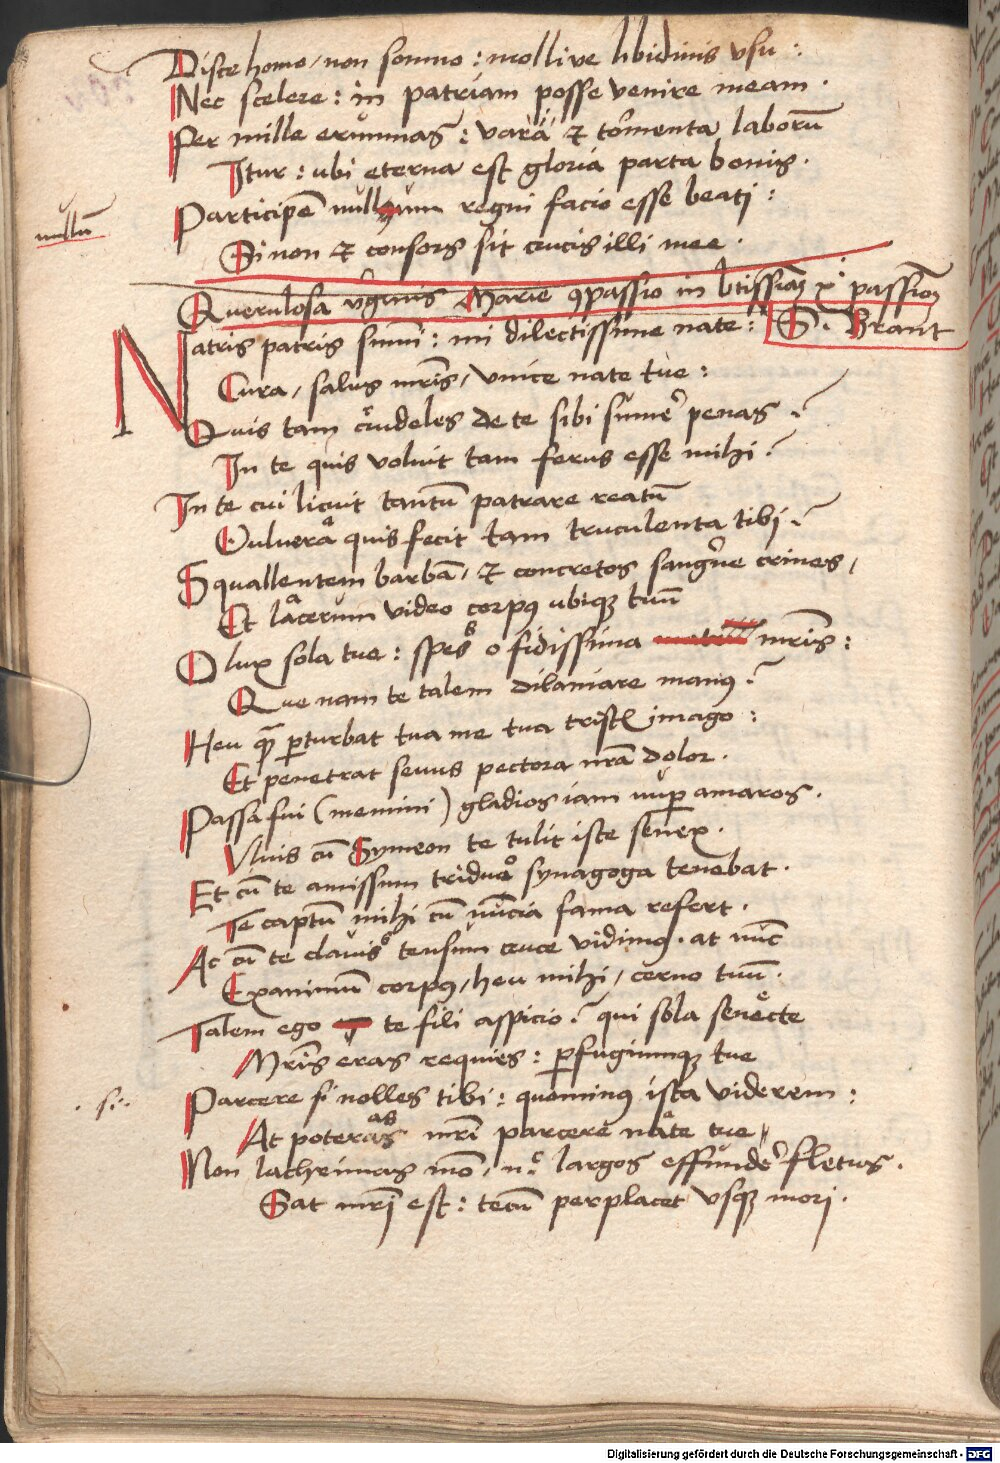 Disce homo / non somno : mollive libidinis usu :
Nec scelere : in patriam posse venire meam .
Per mille erumnas : vara & tormenta laborū
Itur : ubi eterna est gloria parta bonis .
Participē nullum regni facio esse beati :
nullū
Si non & consors sit crucis illi mee .
Querulosa vginis Marie ꝯpassio in btissimā xⁱ passionē
S . Brant
Natris patris summi : mi dilectissime nate :
Cura / salus mr̄is / unice nate tue :
Quis tam crudeles de te sibi sumer̄ penas . ?
In te quis voluit tam ferus esse mihi ?
In te cui licuit tantū patrare reatū
Vulnera quis fecit tam truculenta tibi . ?
Squallentem barbā / & concretos sangr̄ie crines /
Et lacerum video corpꝰ ubiqꝫ tuū
O lux sola tue : spes o fidissima mr̄is :
Que nam te talem dilaniare manꝰ . ?
Heu qꝫ ꝑturbat tua me tua tristꝭ imago :
Et penetrat sevus pectora nr̄a dolor .
Passa fui ( memini ) gladios iam nuꝑ amaros .
Ulnis cū Symeon te tulit iste senex .
Et cū te amissum triduo synagoga tenebat .
Te captū mihi cū nūcia fama refert .
Ac cū te clavis tensum cruce vidimꝰ . at nūc
Exanimum corpꝰ / heu mihi / cerno tuū .
Talem ego te fili aspicio . ? qui sola senecte
Mr̄is eras requies : ꝑfugiumqꝫ tue
Parcere si nolles tibi : quominꝰ ista viderem :
. si . .
At poteras mr̄i parcere nate tue
Non lachrimas mō / nᵉ largos effunder̄ fletus .
Sat mr̄i est : tecū perplacet usqꝫ mori .
Digitalisierung gefördert durch die Deutsche Forschungsgemeinschaft - DFG